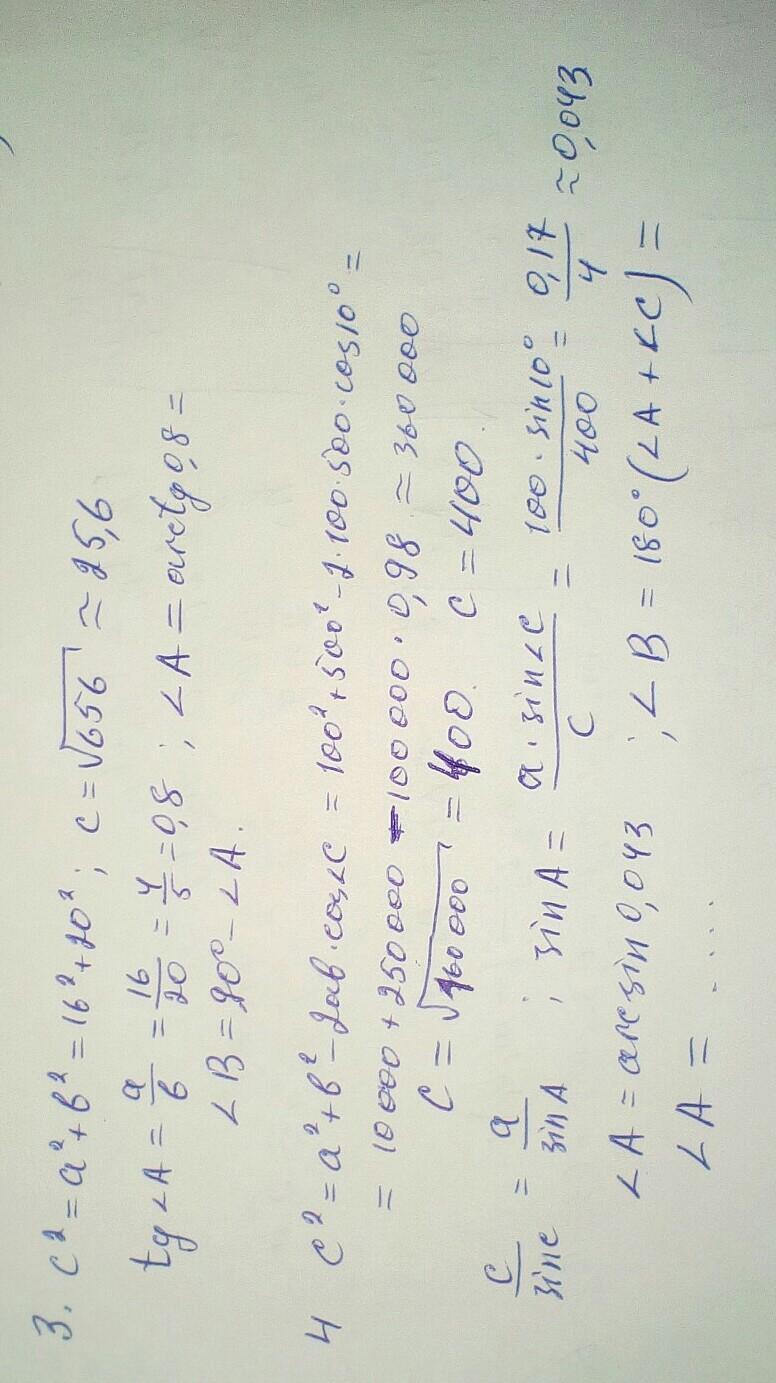 3. c² = a² + b² = 16² + 20² ; c = √656 ≃ 25,6
tg∠A = a/b = 16/20 = 4/5 = 0,8 ; ∠A = arctg 0,8 =
∠B = 90° – ∠A.
4 c² = a² + b² – 2ab·cos∠C = 100² + 500² – 2·100·500·cos10° =
= 10000 + 250000 – 100000·0,98 ≃ 360000
c = √160000 = 400. c = 400.
c/sinc = a/sinA ; sinA = a·sin∠C/c = 100·sin10°/400 = 0,17/4 ≃ 0,043
∠A = arcsin 0,043 ; ∠B = 180°(∠A + ∠C) =
∠A = ....